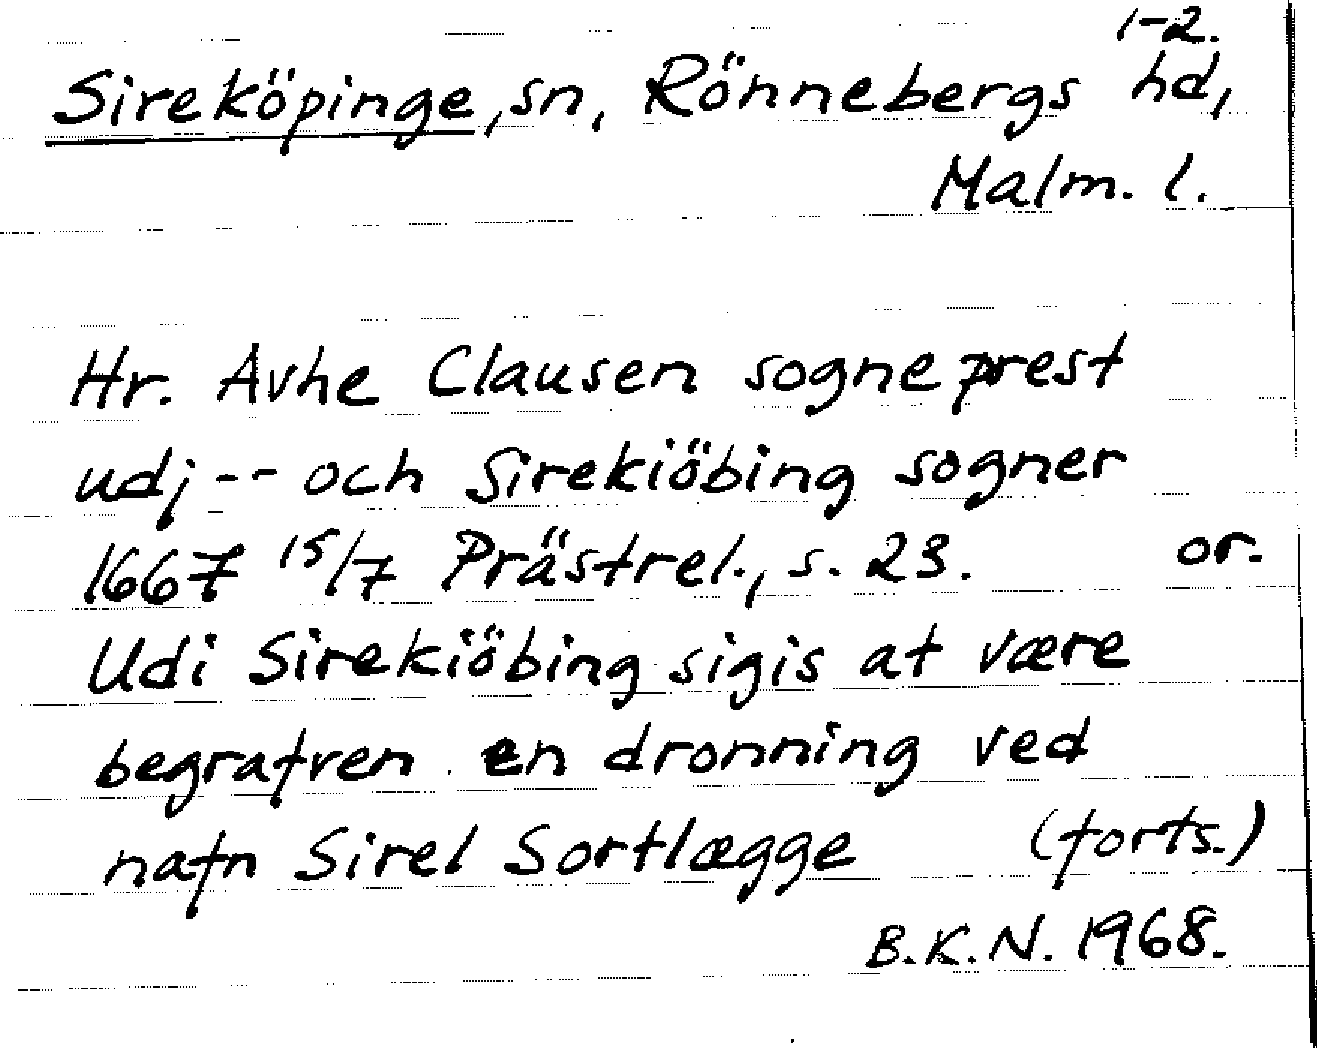 1-2.
Sireköpinge, sn, Rönnebergs hd,
Malm. l.
Hr. Avhe Clausen sogneprest
udj -- och Sirekiöbing sogner
1667 15/7 Prästrel., s. 23. or.
Udi Sirekiöbing sigis at være
begrafven en dronning ved
nafn Sirel Sortlægge (forts.)
B.K.N. 1968.